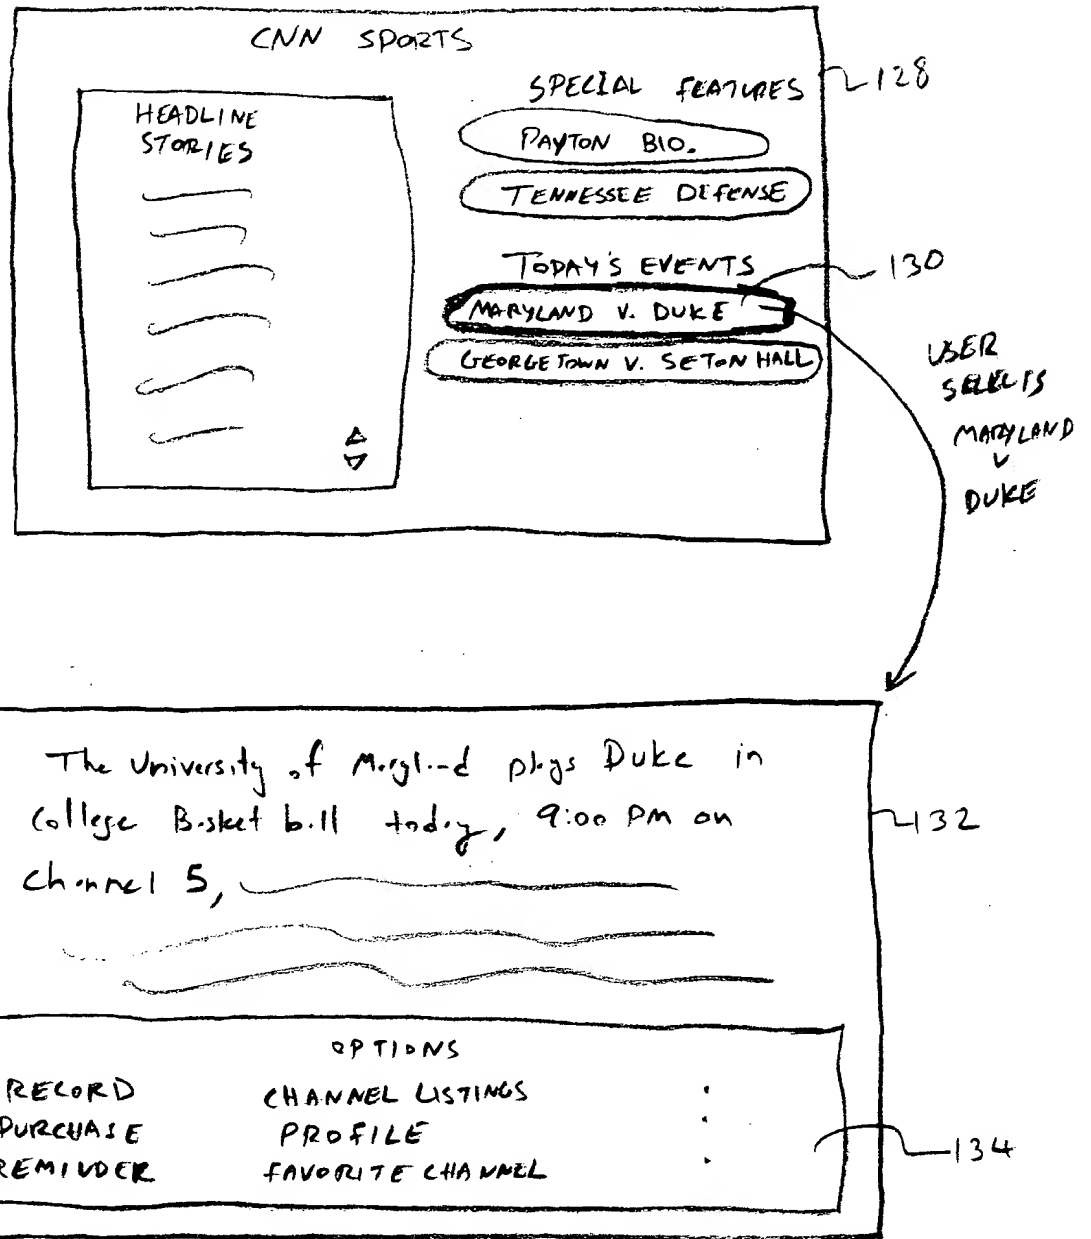 CNN SPORTS
128
SPECIAL FEATURES
HEADLINE
STORIES
PAYTON BIO.
TENNESSEE DEFENSE
TODAY'S EVENTS
130
MARYLAND V. DUKE
GEORGETOWN V. SETON HALL
USER
SELECTS
MARYLAND
V
DUKE
The University of Maryland plays Duke in
College Basketball today, 9:00 PM on
channel 5,
132
OPTIONS
RECORD CHANNEL LISTINGS
PURCHASE PROFILE
REMINDER FAVORITE CHANNEL
134